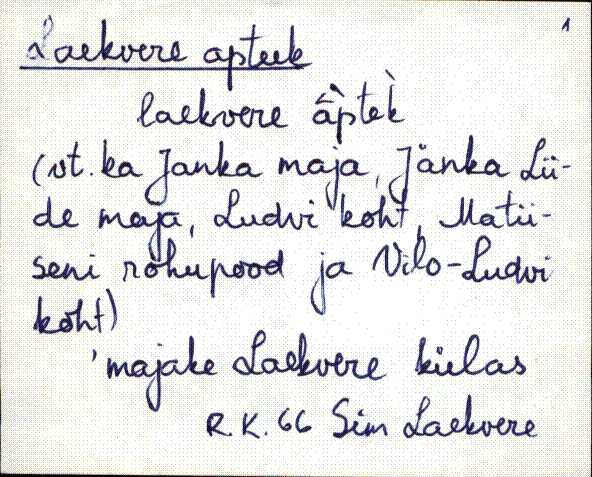 1
Laekvere apteek
laekvere àptèk̀
(vt. ka Janka maja, Jänka Lii-
de maja, Ludvi koht, Matii-
seni rohupood ja Vilo-Ludvi
koht)
'majake Laekvere külas
R.K. 66 Sim Laekvere